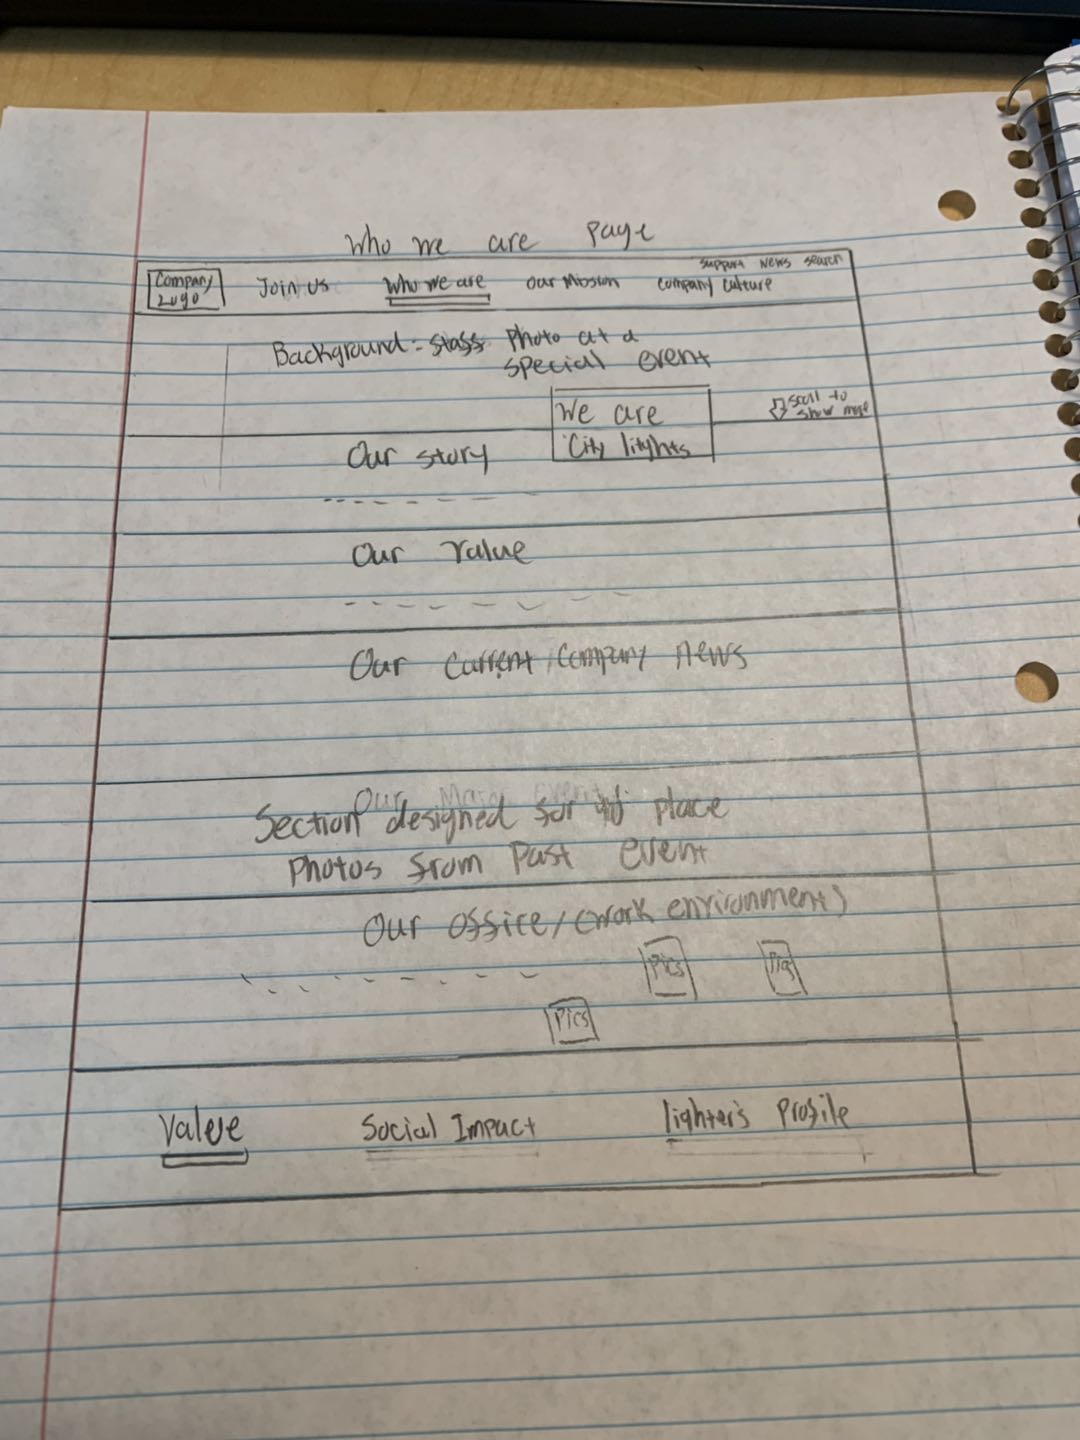 Who we are page
support News search
Company Logo
Join us
Who we are
Our Mission
company culture
Background: staff photo at a
special event
We are
City lights
scroll to
show more
Our story
Our value
Our current company news
Section designed for place
photos from past event
Our office/(work environment)
Pics
Pics
Pics
Value
Social Impact
lighter's profile